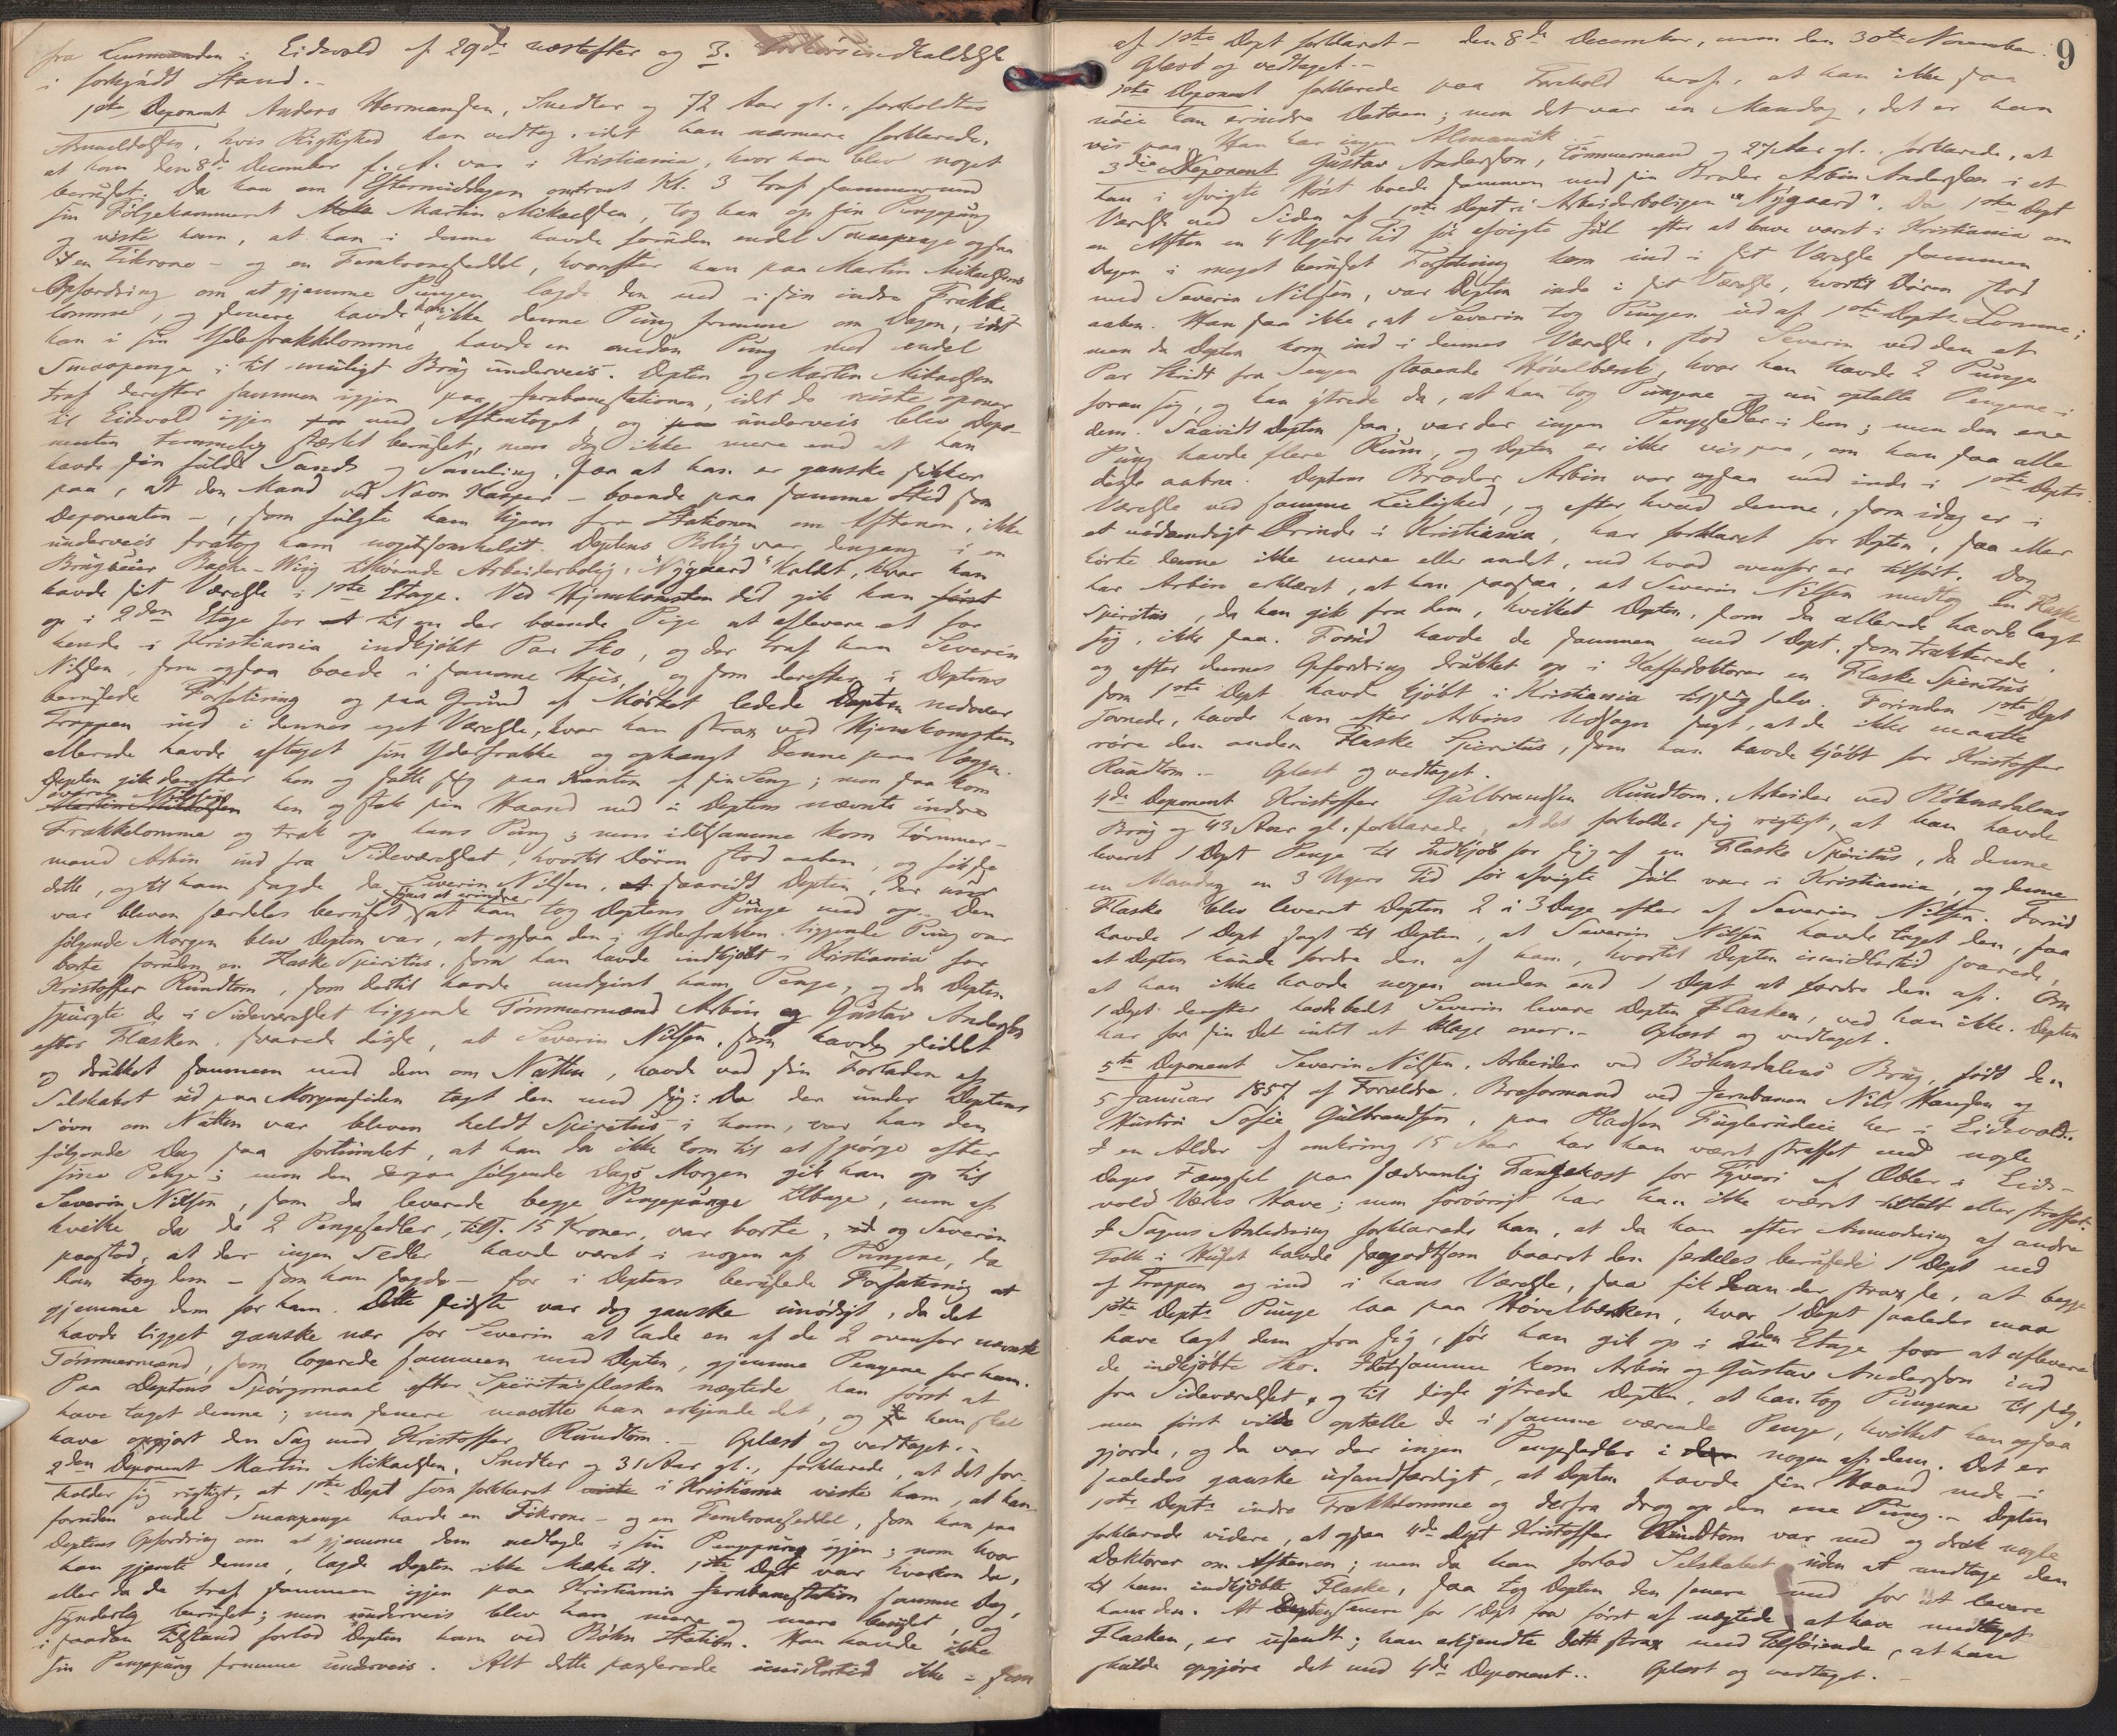 fra Lensmanden i Eidsvold af 29de næstefter og 3. Forhørsindkaldelse
i forkyndt Stand.-
1ste Deponent Anders Hermansen, Snedker og 72 Aar gl., forholdtes
Anmeldelsen, hvis Rigtighed han vedtog, idet han nærmere forklarede,
at han den 8de December f. A. var i Kristiania, hvor han blev noget
beruset. Da han om Eftermiddagen omtrent Kl. 3 traf sammen med
sin Følgekammerat Martin Mikaelsen, tog han op sin Pengepung
og viste ham, at han i denne havde foruden endel Smaapenge ogsaa
en Tikrone- og en Femkroneseddel, hvorefter han paa Martin Mikaelsens
Opfordring om at gjemme Pungen lagde den ned i sin indre Frakke-
lomme, og senere havde han ikke denne Pung fremme om Dagen, idet
han i sin Yderfrakklomme havde en anden Pung med endel
Smaapenge i til muligt Brug underveis. Depten og Martin Mikaelsen
traf derefter sammen igjen paa Jernbanestationen, idet de reiste opover
til Eidsvold igjen med Aftentoget, og underveis blev Depo-
nenten temmelig stærkt beruset, men dog ikke mere end at han
havde sin fulde Sands og Samling, saa at han er ganske sikker
paa, at den Mand ved Navn Kasper - boende paa samme Sted som
Deponenten -, som fulgte ham hjem fra Stationen om Aftenen, ikke
underveis fratog ham nogetsomhelst. Deptens Bolig var dengang i en
Brugseier Bache-Wiig tilhørende Arbeiderbolig, "Nygaard" kaldt, hvor han
havde sit Værelse i 1ste Etage. Ved Hjemkomsten did gik han først
op i 2den Etage for til en der boende Pige at aflevere et for
hende i Kristiania indkjøbt Par Sko, og der traf han Severin
Nilsen, som ogsaa boede i samme Hus, og som derefter i Deptens
berusede Forfatning og paa Grund af Mørket ledede Depten nedover
Trappen ind i dennes eget Værelse, hvor han strax ved Hjemkomsten
allerede havde aftaget sin Yderfrakke og ophængt denne paa Væggen.
Depten gik derefter hen og satte sig paa Kanten af sin Seng; men saa kom
Severin Nilsen hen og stak sin Haand ned i Deptens nævnte indre
Frakkelomme og trak op hans Pung; men idetsamme kom Tømmer-
mand Arbin ind fra Sideværelset, hvortil Døren stod aaben, og saa
dette, og til ham sagde da Severin Nilsen, saavidt Depten, der nu
var bleven særdeles beruset synes at erindre, at han tog Deptens Punge med op. Den
følgende Morgen blev Depten var, at ogsaa den i Yderfrakken liggende Pung var
borte foruden en Flaske Spiritus, som han havde indkjøbt i Kristiania for
Kristoffer Rundtom, som dertil havde medgivet ham Penge, og da Depten
spurgte de i Sideværelset liggende Tømmermænd Arbin og Gustav Andersen
efter Flasken, svarede disse, at Severin Nilsen, som havde siddet
og drukket sammen med dem om Natten, havde ved sin Forladen af
Selskabet ud paa Morgensiden tagt den med sig. Da der under Deptens
Søvn om Natten var bleven heldt Spiritus i ham, var han den
følgende Dag saa fortumlet, at han da ikke kom til at spørge efter
sine Penge; men den derpaa følgende Dags Morgen gik han op til
Severin Nilsen, som da leverede begge Pengepunge tilbage, men af
hvilke da de 2 Pengesedler, tils. 15 Kroner, var borte, og Severin
paastod, at der ingen Sedler havde været i nogen af Pungene, da
han tog dem - som han sagde - for i Deptens berusede Forfatning at
gjemme dem for ham. Dette sidste var dog ganske unødigt, da det
havde ligget ganske nær for Severin at lade en af de 2 ovenfor nævnte
Tømmermænd, som logerede sammen med Depten, gjemme Pengene for ham.
Paa Deptens Spørgsmaal efter Spiritusflasken nægtede han først at
have taget denne; men senere maatte han erkjende det, og han skal
have opgjort den Sag med Kristoffer Rundtom.- Oplæst og vedtaget.-
2den Deponent Martin Mikaelsen, Snedker og 31 Aar gl., forklarede, at det for-
holder sig rigtigt, at 1ste Dept som forklaret i Kristiania viste ham, at han
foruden endel Smaapenge havde en Tikrone- og en Femkroneseddel, som han paa
Deptens Opfordring om at gjemme dem nedlagde i sin Pengepung igjen; men hvor
han gjemte denne, lagde Depten ikke Mærke til. 1ste Dept var hverken da,
eller da de traf sammen igjen paa Kristiania Jernbanestation samme Dag,
synderlig beruset; men underveis blev han mere og mere beruset, og
i saadan Tilstand forlod Depten ham ved Bøhn Station. Han havde ikke
sin Pengepung fremme underveis. Alt dette passerede imidlertid ikke - som
9
af 1ste Dept forklaret - den 8de December, men den 30te November.
Oplæst og vedtaget.-
1ste Deponent forklarede paa Forhold heraf, at han ikke saa
nøie kan erindre Datoen; men det var en Mandag, det er han
vis paa. Han har ingen Almanak.-
3die Deponent Gustav Andersen, Tømmermand og 27 Aar gl., forklarede, at
han i afvigte Høst boede sammen med sin Broder Arbin Andersen i et
Værelse ved Siden af 1ste Dept i Arbeiderboligen "Nygaard". Da 1ste Dept
en Aften en 4 Ugers Tid før afvigte Jul efter at have været i Kristiania om
Dagen i meget beruset Forfatning kom ind i sit Værelse sammen
med Severin Nilsen, var Depten inde i sit Værelse, hvortil Døren stod
aaben. Han saa ikke, at Severin tog Pungen ud af 1ste Depts Lomme;
men da Depten kom ind i dennes Værelse, stod Severin ved den et
Par Skridt fra Sengen staaende Høvelbænk, hvor han havde 2 Punge
foran sig, og han ytrede da, at han tog Pungene og nu optalte Pengene i
dem. Saavidt Depten saa, var der ingen Pengesedler i dem; men den ene
Pung havde flere Rum, og Depten er ikke vis paa, om han saa alle
disse aabne. Deptens Broder Arbin var ogsaa med inde i 1ste Depts
Værelse ved samme Leilighed, og efter hvad denne, som idag er i
et nødvendigt Ærinde i Kristiania, har forklaret for Depten, saa eller
hørte denne ikke mere eller andet, end hvad ovenfor er tilført. Dog
har Arbin erklæret, at han saa, at Severin Nilsen medtog en Flaske
Spiritus, da han gik fra dem, hvilket Depten, som da allerede havde lagt
sig, ikke saa. Forud havde de sammen med 1 Dept, som trakterede,
og efter dennes Opfordring drukket op i Kaffedoktorer en Flaske Spiritus,
som 1ste Dept havde kjøbt i Kristiania til sig selv. Forinden 1ste Dept
sovnede, havde han efter Arbins Udsagn sagt, at de ikke maatte
røre den anden Flaske Spiritus, som han havde kjøbt for Kristoffer
Rundtom.- Oplæst og vedtaget.
4de Deponent Kristoffer Gulbrandsen Rundtom, Arbeider ved Bøhnsdalens
Brug og 43 Aar gl., forklarede, at det forholder sig rigtigt, at han havde
leveret 1 Dept Penge til Indkjøb for sig af en Flaske Spiritus, da denne
en Mandag en 3 Ugers Tid før afvigte Jul var i Kristiania, og denne
Flaske blev leveret Depten 2 à 3 Dage efter af Severin Nilsen. Forud
havde 1 Dept sagt til Depten, at Severin Nilsen havde taget den, saa
at Depten kunde fordre den af ham, hvortil Depten imidlertid svarede,
at han ikke havde nogen anden end 1 Dept at fordre den af. Om
1 Dept derefter havde bedt Severin levere Depten Flasken, ved han ikke. Depten
har for sin Del intet at klage over.- Oplæst og vedtaget.
5te Deponent Severin Nilsen, Arbeider ved Bøhnsdalens Brug, født den
5 Januar 1857 af Forældre, Broformand ved Jernbanen Nils Hansen og
Hustru Sofie Gulbrandsen, paa Pladsen Fuglerudeie her i Eidsvold.
I en Alder af omkring 15 Aar har han været straffet med nogle
Dages Fængsel paa sædvanlig Fangekost for Tyveri af Æbler i Eids-
vold Værks Have; men forøvrigt har han ikke været tiltalt eller straffet.
I Sagens Anledning forklarede han, at da han efter Anmodning af andre
Folk i Huset havde saagodtsom baaret den særdeles berusede 1 Dept ned
af Trappen og ind i hans Værelse, saa fik han der strax se, at begge
1ste Depts Punge laa paa Høvelbænken, hvor 1 Dept saaledes maa
have lagt dem fra sig, før han gik op i 2den Etage for at aflevere
de indkjøbte Sko. Idetsamme kom Arbin og Gustav Andersen ind
fra Sideværelset, og til disse ytrede Depten, at han tog Pungene til sig,
men først vilde optælle de i samme værende Penge, hvilket han ogsaa
gjorde, og da var der ingen Pengesedler i nogen af dem. Det er
saaledes ganske usandfærdigt, at Depten havde sin Haand nede i
1ste Depts indre Frakkelomme og derfra drog op den ene Pung.- Depten
forklarede videre, at ogsaa 4de Dept Kristoffer Rundtom var med og drak nogle
Doktorer om Aftenen; men da han forlod Selskabet uden at medtage den
til ham indkjøbte Flaske, saa tog Depten den senere med for at levere
ham den. At Depten senere for 1 Dept først af nægtede at have medtaget
Flasken, er usandt; han erkjendte dette strax med Tilføiende, at han
skulde opgjøre det med 4de Deponent.. Oplæst og vedtaget.-